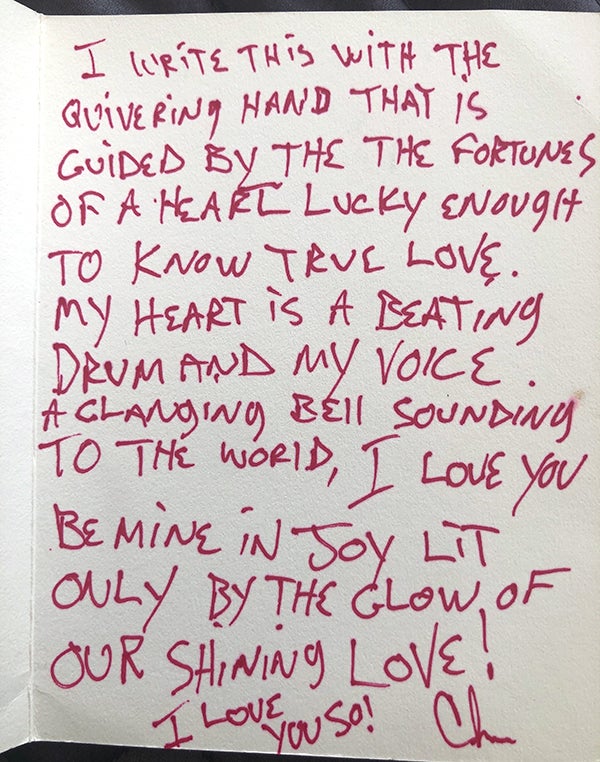 I WRITE THIS WITH THE
QUIVERING HAND THAT IS
GUIDED BY THE THE FORTUNES
OF A HEART LUCKY ENOUGH
TO KNOW TRUE LOVE.
MY HEART IS A BEATING
DRUM AND MY VOICE.
A CLANGING BEll SOUNDING
TO THE WORlD, I LOVE YOU
BE MINE IN JOY LIT
ONLY BY THE GLOW OF
OUR SHINING LOVE!
I LOVE YOU SO!